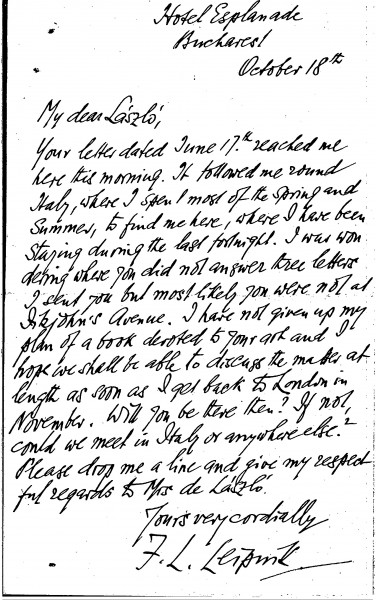 Hotel Esplanade
Bucharest
October 18th
My dear László,
Your letter dated June 17th reached me
here this morning. It followed me round
Italy, where I spent most of the Spring and
Summer, to find me here, where I have been
staying during the last fortnight. I was won
dering where you did not answer three letters
I sent you but most likely you were not at
Fitzjohn's Avenue. I have not given up my
plan of a book devoted to your art and I
hope we shall be able to discuss the matter at
length as soon as I get back to London in
November. Will you be there then? If not,
could we meet in Italy or anywhere else?
Please drop me a line and give my respect
ful regards to Mrs de László.
Yours very cordially
F. L. Leipnik